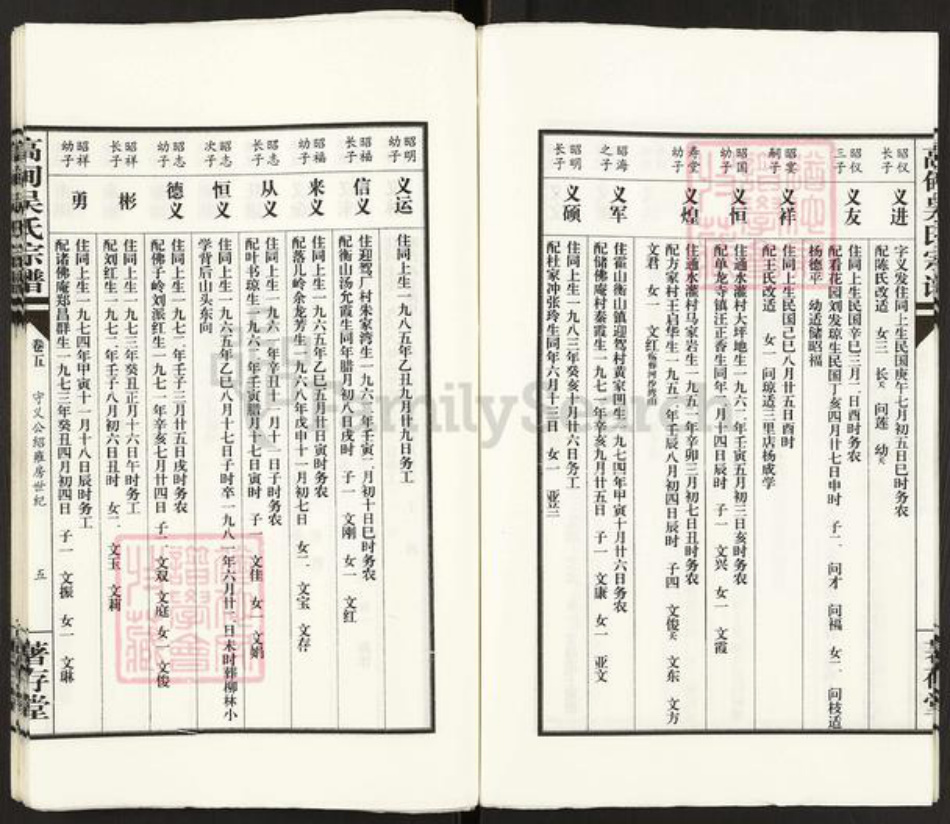 昭仪长子
义进
字义发住同上生民国庚午七月初五日巳时务农
配陈氏改适 女三 长 问莲 幼
昭仪三子
义友
住同上生民国辛巳三月一日酉时务农
配看花园刘发琼生民国丁亥四月廿七日申时 子二 问才 问福 女二 问枝适
杨德平 幼适储昭福
昭宴嗣子
义祥
住同上生民国己巳八月廿五日酉时
配王氏改适 女一 问琼适三里店杨成学
昭国幼子
义恒
住通水灌村大坪地生一九六二年壬寅五月初三日亥时务农
配单龙寺镇汪正香生同年二月十四日辰时 子一 文兴 女一 文霞
寿堂幼子
义煌
住通水灌村马家岩生一九五一年辛卯三月初七日丑时务农
配方家村王启华生一九五二年壬辰八月初四日辰时 子四 文俊 文东 文方
文君 女一 文红
昭海之子
义军
住霍山衡山镇迎驾村黄家凹生一九七四年甲寅十月廿六日务农
配储佛庵村秦霞生一九七一年辛亥九月廿五日 子一 文康 女一 亚文
昭明长子
义硕
住同上生一九八三年癸亥十月廿六日务工
配杜家冲张玲生同年六月十三日 女一 亚兰
昭明幼子
义运
住同上生一九八五年乙丑九月廿九日务工
昭福长子
信义
住迎驾厂村朱家湾生一九六二年壬寅二月初十日巳时务农
配衡山汤允霞生同年腊月初八日戌时 子一 文刚 女一 文红
昭福幼子
来义
住同上生一九六五年乙巳五月廿日寅时务农
配落儿岭余龙芳生一九六八年戊申十一月初七日 女二 文宝 文存
昭志长子
从义
住同上生一九六一年辛丑十一月十一日子时务农
配叶书琼生一九六二年壬寅腊月十七日寅时 子一 文佳 女一 文娟
昭志次子
恒义
住同上生一九六五年乙巳八月十七日子时卒一九八一年六月廿二日未时葬柳林小
学背后山头东向
昭志幼子
德义
住同上生一九七二年壬子三月廿五日戌时务农
配佛子岭刘派红生一九七一年辛亥七月廿四日 子二 文双 文庭 女一 文俊
昭祥长子
彬
住同上生一九七三年癸丑正月十六日午时务工
配刘红生一九七二年壬子八月初六日丑时 女二 文玉 文莉
昭祥幼子
勇
住同上生一九七四年甲寅十一月十八日辰时务工
配诸佛庵郑昌群生一九七三年癸丑四月初四日 子一 文振 女一 文琳
高河吴氏宗谱
卷五
守义公绍雍房世纪
五
著存堂
FamilySearch